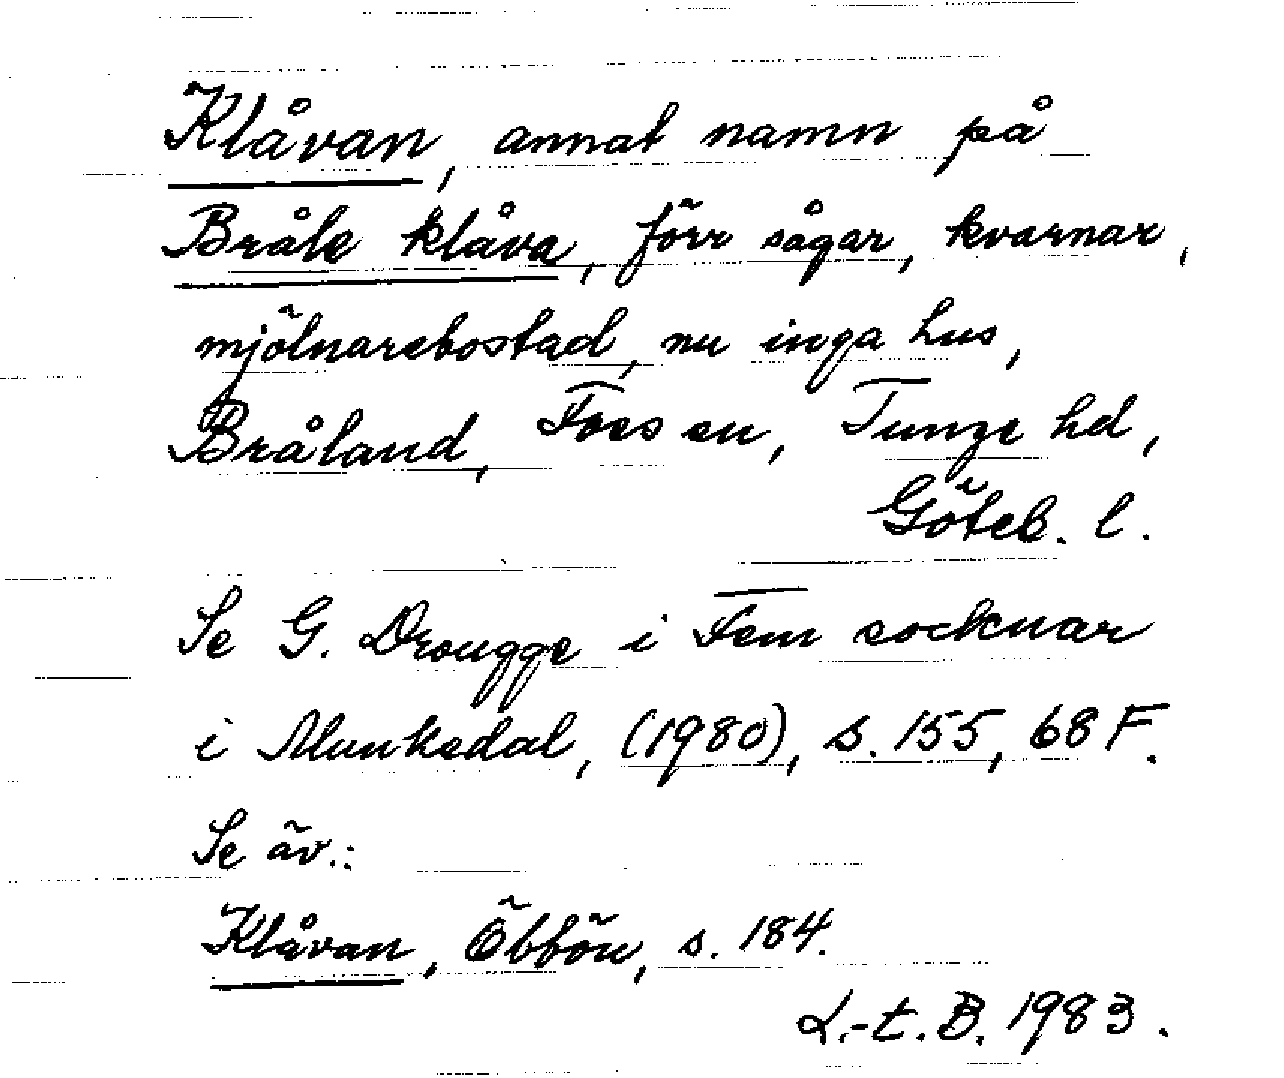 Klåvan, annat namn på
Bråle klåva, förr sågar, kvarnar,
mjölnarebostad, nu inga hus,
Bråland, Foss sn, Tunge hd,
Göteb. l.
Se G. Drougge i Fem socknar
i Munkedal, (1980), s. 155, 68 F.
Se äv.:
Klåvan, ÖbbÖn, s. 184.
L.-t. B. 1983.